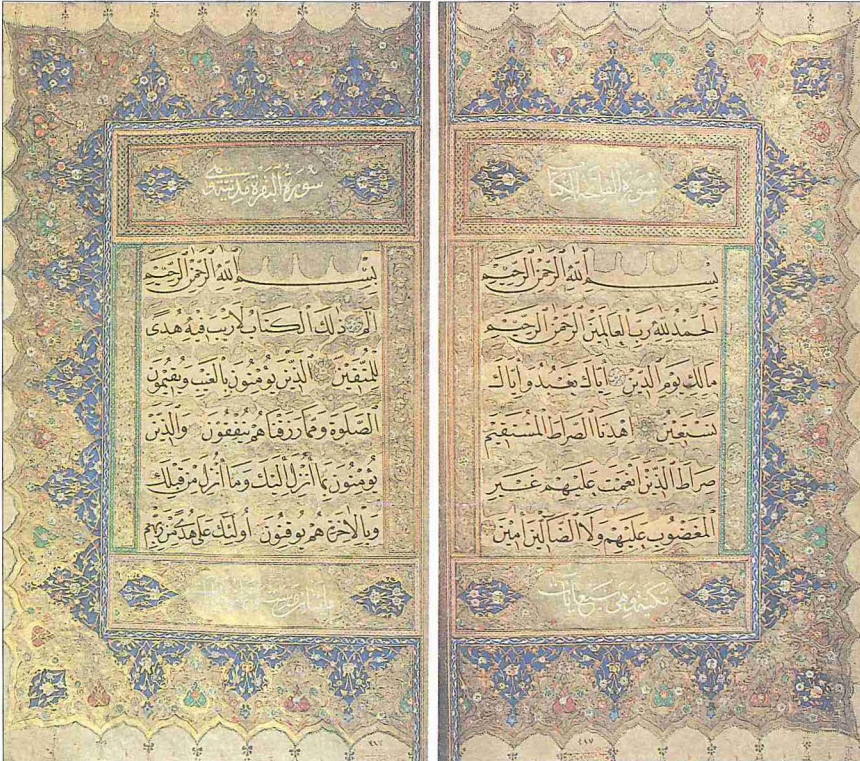 سورة الفاتحة الكتاب
بِسْمِ ٱللَّهِ ٱلرَّحْمٰنِ ٱلرَّحِيمِ
اَلْحَمْدُ لِلّٰهِ رَبِّ الْعَالَمِينَ الرَّحْمٰنِ الرَّحِيمِ
مَالِكِ يَوْمِ الدِّينِ اِيَّاكَ نَعْبُدُ وَاِيَّاكَ
نَسْتَعِينُ اِهْدِنَا الصِّرَاطَ الْمُسْتَقِيمَ
صِرَاطَ الَّذِينَ اَنْعَمْتَ عَلَيْهِمْ غَيْرِ
الْمَغْضُوبِ عَلَيْهِمْ وَلَا الضَّالِّينَ اٰمِينَ
مكية وهي سبع آيات
سورة البقرة مدنية وهي
بِسْمِ ٱللَّهِ ٱلرَّحْمٰنِ ٱلرَّحِيمِ
الٓمٓ ذٰلِكَ الْكِتَابُ لَا رَيْبَ فِيهِ هُدًى
لِلْمُتَّقِينَ الَّذِينَ يُؤْمِنُونَ بِالْغَيْبِ وَيُقِيمُونَ
الصَّلٰوةَ وَمِمَّا رَزَقْنَاهُمْ يُنْفِقُونَ وَالَّذِينَ
يُؤْمِنُونَ بِمَا اُنْزِلَ اِلَيْكَ وَمَا اُنْزِلَ مِنْ قَبْلِكَ
وَبِالْاٰخِرَةِ هُمْ يُوقِنُونَ اُولٰئِكَ عَلٰى هُدًى مِنْ رَبِّهِمْ